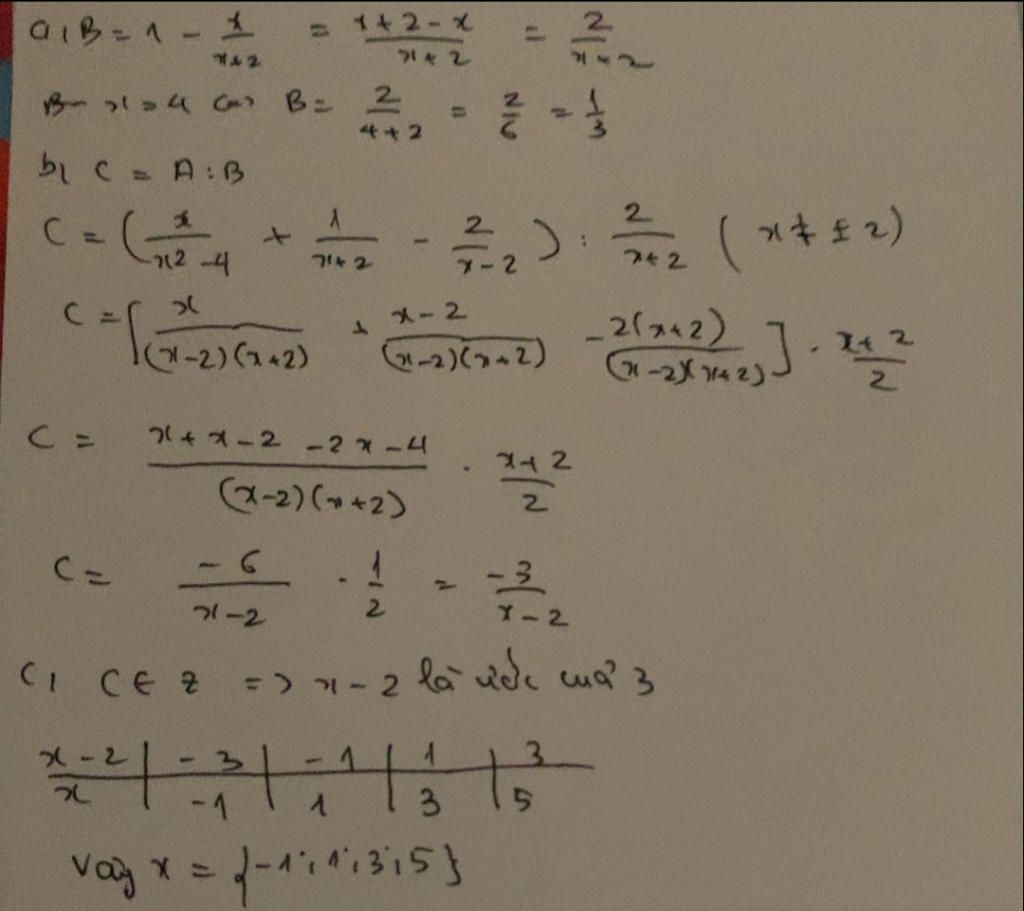 a, B = 1 - x/(x+2) = (x+2-x)/(x+2) = 2/(x+2)
x = 4 B = 2/(4+2) = 2/6 = 1/3
b, C = A : B
C = (x/(x²-4) + 1/(x+2) - 2/(x-2)) : 2/(x+2) (x ≠ ±2)
C = [x/((x-2)(x+2)) + (x-2)/((x-2)(x+2)) - 2(x+2)/((x-2)(x+2))] . (x+2)/2
C = (x+x-2-2x-4)/((x-2)(x+2)) . (x+2)/2
C = -6/(x-2) . 1/2 = -3/(x-2)
c, C ∈ Z => x-2 là ước của 3
x-2 | -3 | -1 | 1 | 3
x | -1 | 1 | 3 | 5
Vậy x = {-1; 1; 3; 5}